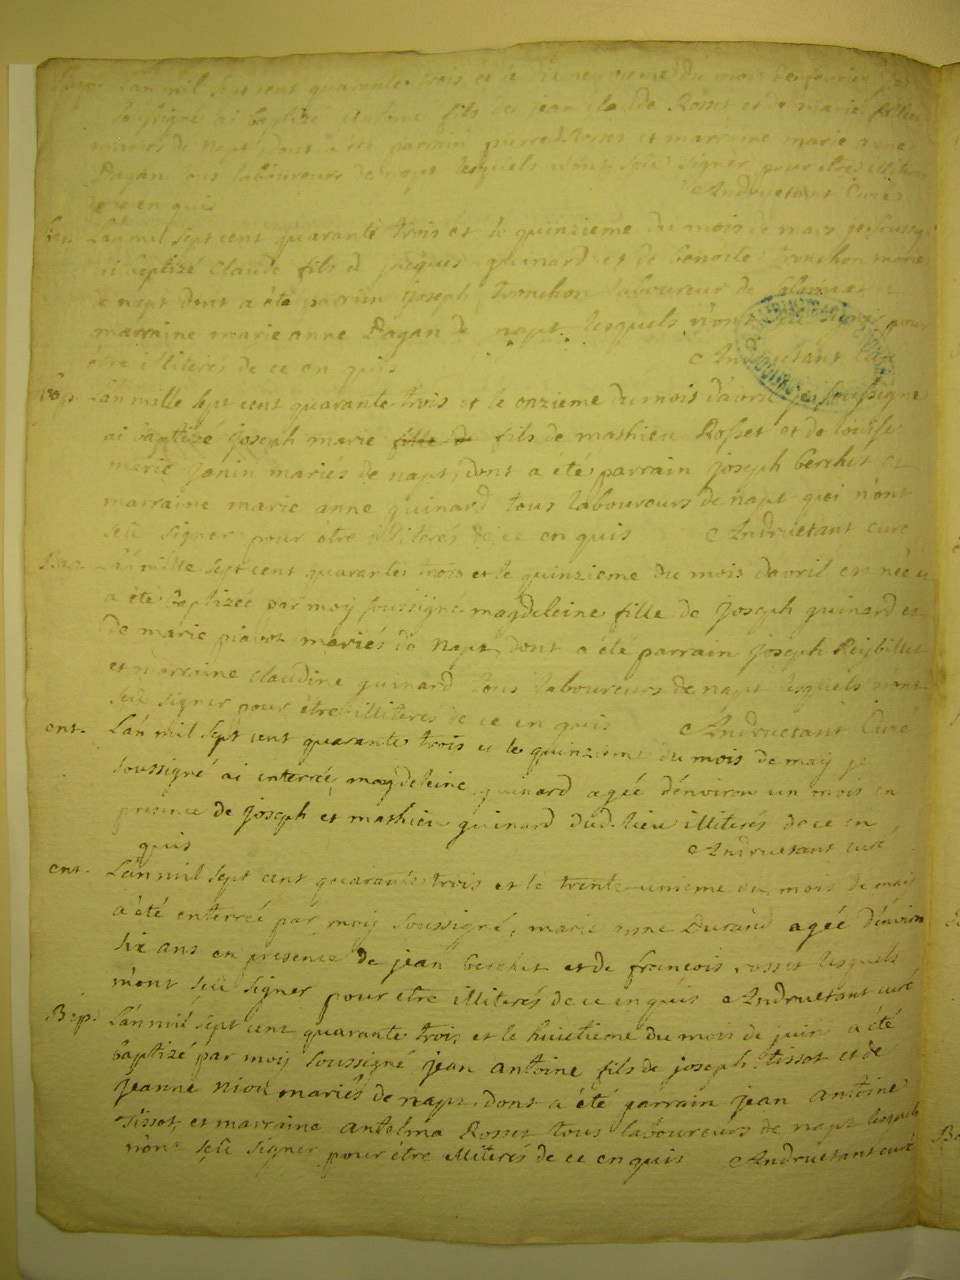 Bap. Lan mil sept cent quarante trois et le dix neuvieme du mois de fevrier je
soussigné ai baptizé fils de jean claude Rosset et de marie
mariés de napt dont a été parrain pierre Rosset et marraine marie anne
Pagan tous laboureurs de napt lesquels n'ont seü signer pour etre illiteres
de ce en quis Andruetant Curé
Lan mil sept cent quarante trois et le quinzieme du mois de mars je soussigné
ai baptizé Claude fils de jacques guinard et de benoite Tronchon mariés
de napt dont a été parrain joseph Tronchon laboureur de et
marraine marie anne Pagan de napt lesquels n'ont seü signer pour
etre illiterés de ce en quis Andruetant Curé
Bap. Lan mille sept cent quarante trois et le onzieme du mois d'avril je soussigné
ai baptizé joseph marie fille de fils de mathieu Rosset et de louise
marie janin mariés de napt, dont a été parrain joseph berchet et
marraine marie anne guinard tous laboureurs de napt qui n'ont
seü signer pour etre illiterés de ce en quis Andruetant curé
Bap. Lan mille sept cent quarantes trois et le quinzieme du mois d'avril est née et
a été baptizée par moÿ soussigné magdeleine fille de joseph guinard et
de marie piavot mariés de napt dont a été parrain joseph Reybillet
et marraine claudine guinard tous laboureurs de napt lesquels n'ont
seü signer pour etre illiterés de ce en quis Andruetant Curé
ent. Lan mil sept cent quarante trois et le quinzieme du mois de maÿ je
soussigné ai enterrée magdeleine guinard agée d'environ un mois en
presence de joseph et mathieu guinard dud. lieu illiterés de ce en
quis Andruetant curé
ent. Lan mil sept cent quarante trois et le trente unieme du mois de mai
a été enterrée par moÿ soussigné, marie anne Durand agée d'environ
six ans en presence de jean berchet et de francois rosset lesquels
n'ont seü signer pour etre illiterés de ce en quis Andruetant curé
Bap. Lan mil sept cent quarante trois et le huitieme du mois de juin a été
baptizé par moÿ soussigné jean antoine fils de joseph tissot et de
jeanne niou mariés de napt, dont a été parrain jean antoine
Tissot et marraine antelma Rosset tous laboureurs de napt lesquels
n'ont seü signer pour etre illiterés de ce en quis Andruetant curé